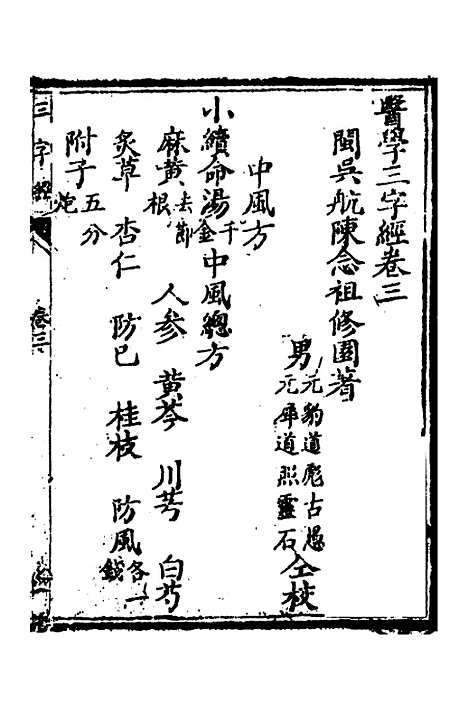 醫學三字經卷三
閩吳航陳念祖修園著
男元豹道彪古愚
元犀道照靈石仝校
中風方
小續命湯千金中風總方
麻黃去節根 人參 黃芩 川芎 白芍
炙草 杏仁 防已 桂枝 防風各一錢
附子五分炮
三字經 卷三